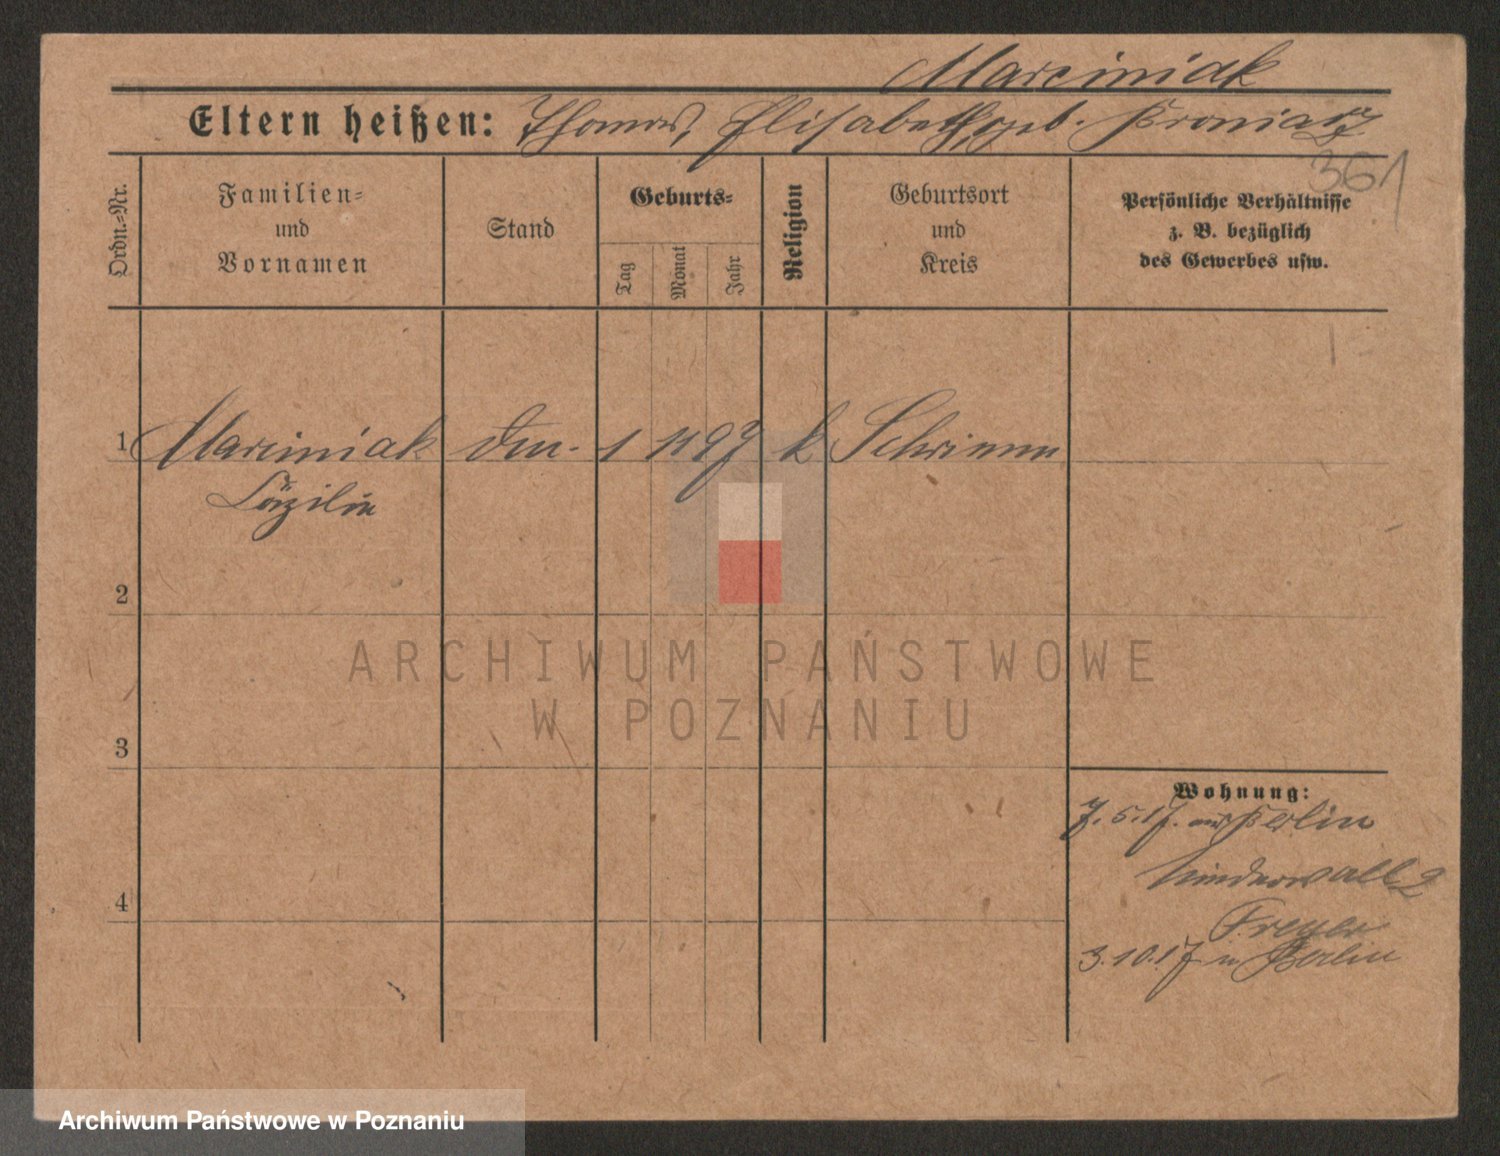 Marciniak
Eltern heißen: Thomas, Elisabeth, geb. Broniarz
361
Ordn.=Nr.
Familien=
und
Vornamen
Stand
Geburts=
Tag
Monat
Jahr
Religion
Geburtsort
und
Kreis
Persönliche Verhältnisse
z. B. bezüglich
des Gewerbes usw.
1 Marciniak 1 11 97 k Schrimm
Cäzilia
2
ARCHIWUM PAŃSTWOWE
W POZNANIU
3
Wohnung:
7.5.17. aus Berlin
4
3.10.17 n Berlin
Archiwum Państwowe w Poznaniu